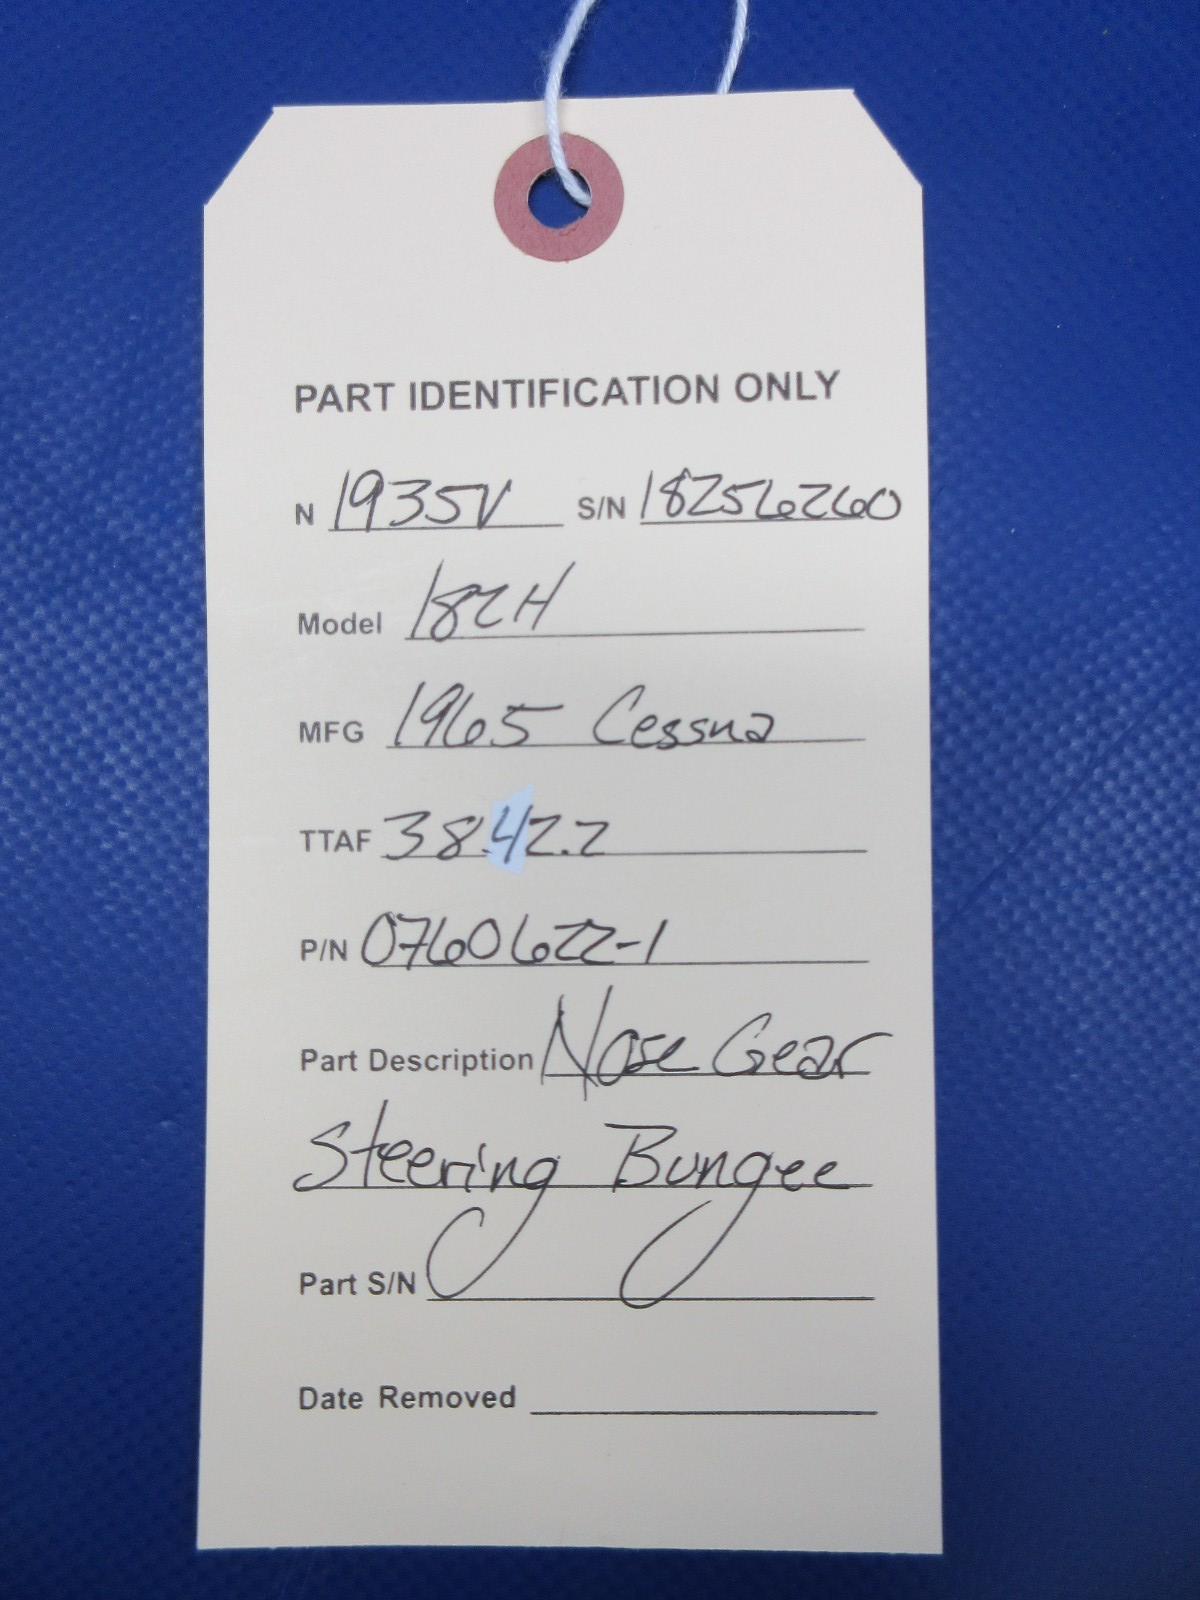 PART IDENTIFICATION ONLY
N 1935V S/N 18256260
Model 182H
MFG 1965 Cessna
TTAF 3842.2
P/N 0760622-1
Part Description Nose Gear
Steering Bungee
Part S/N
Date Removed